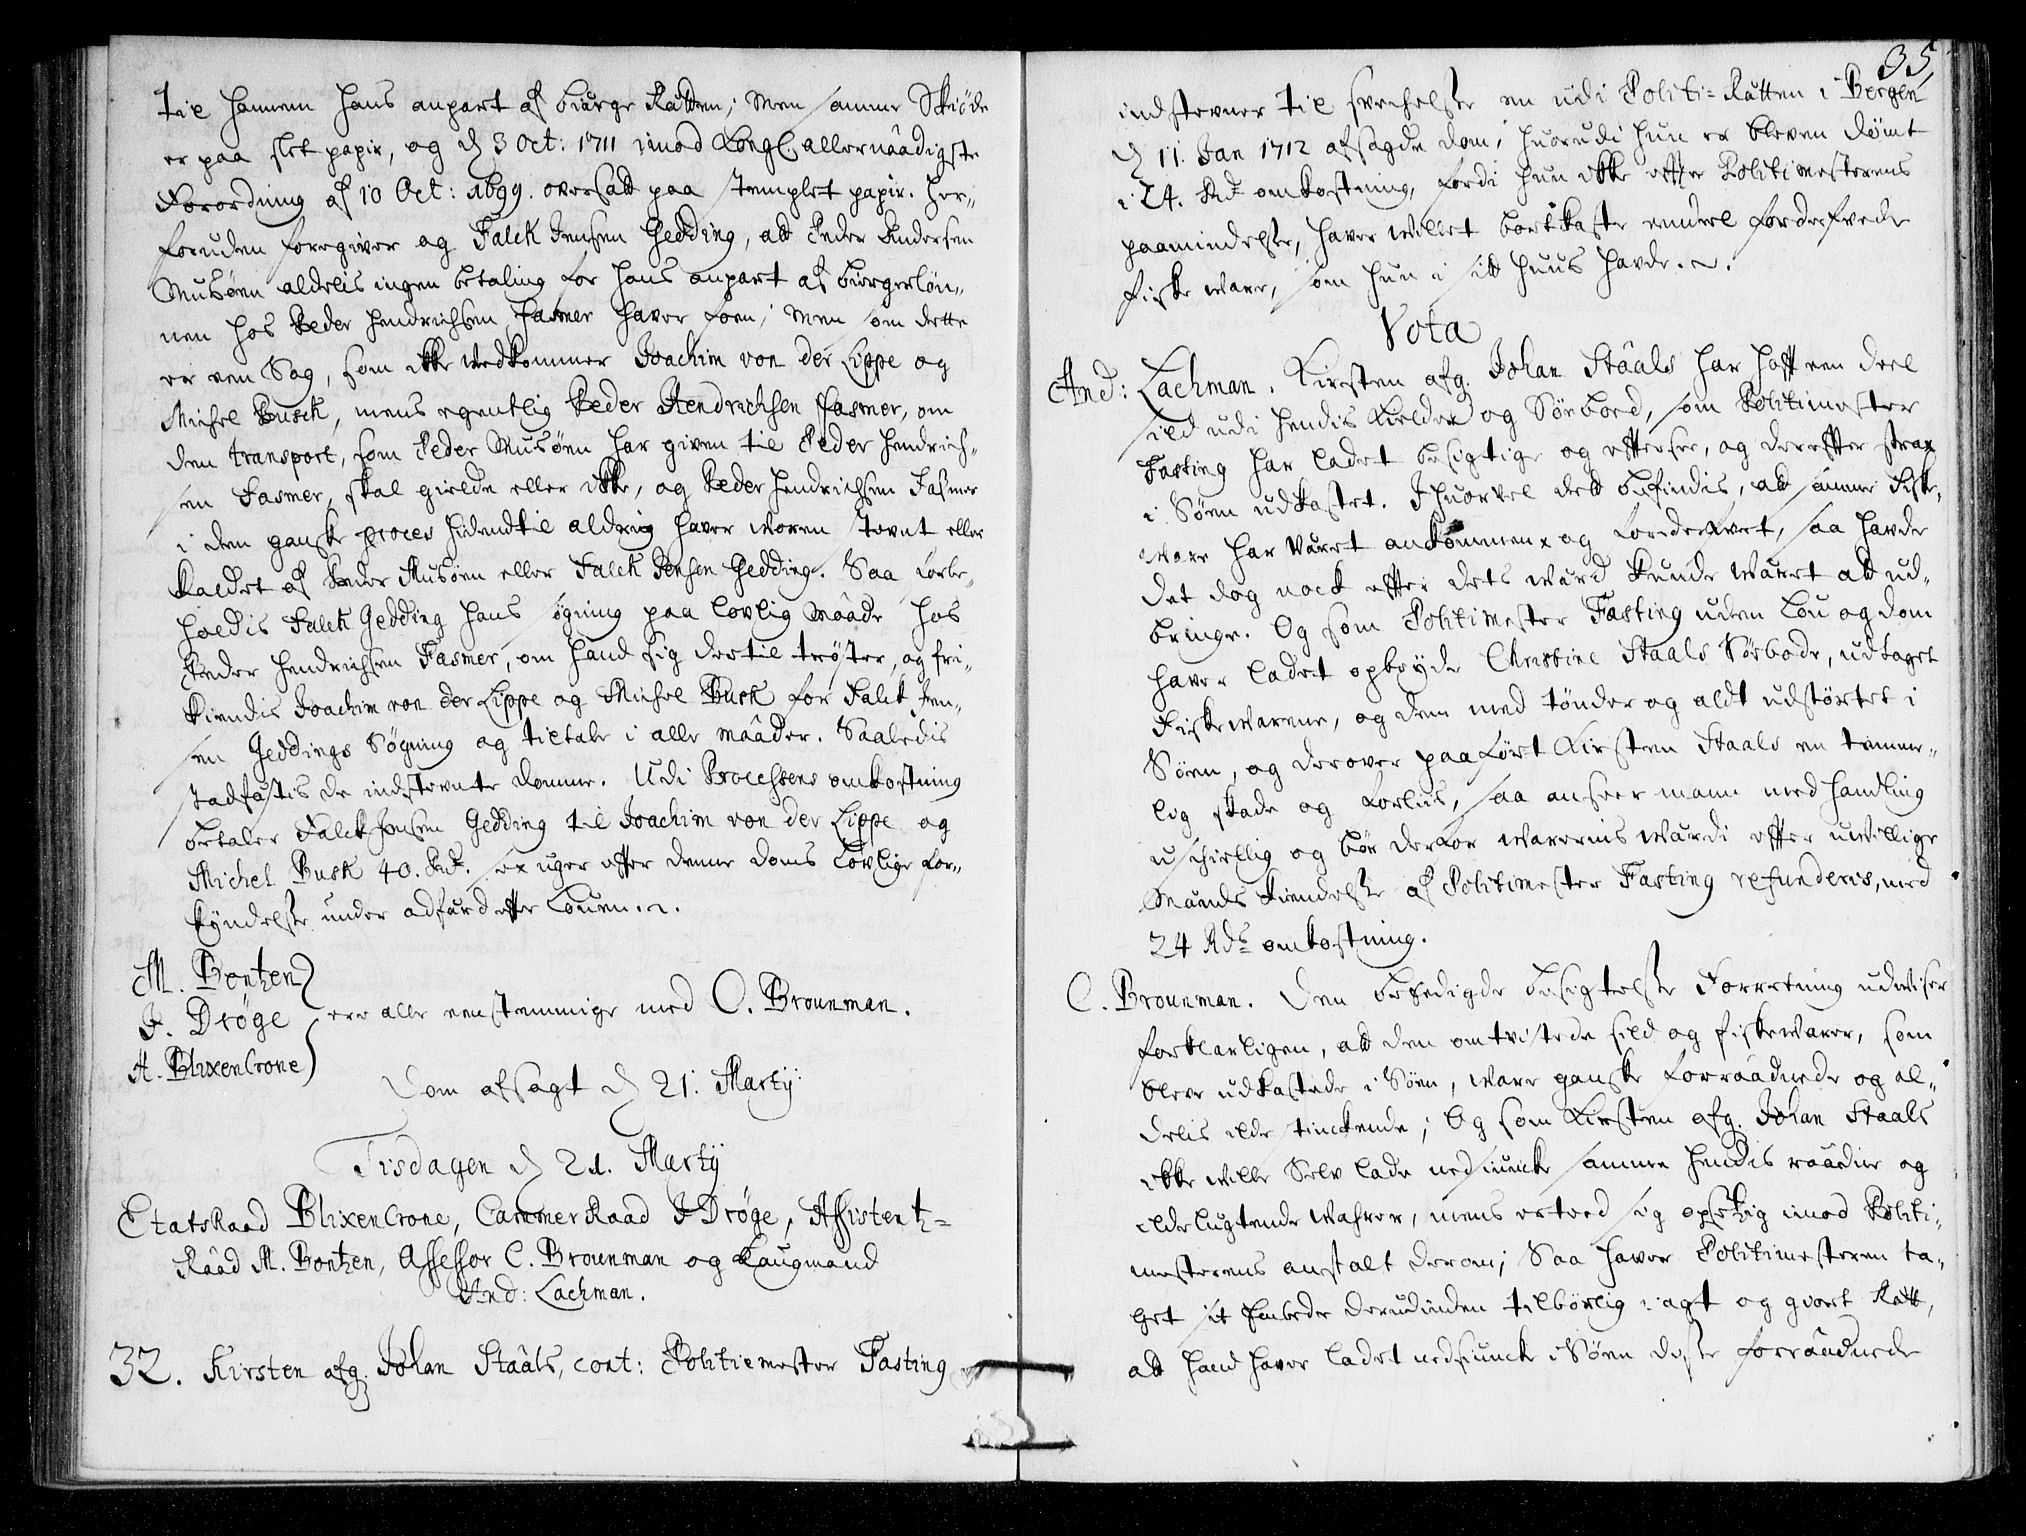 til hannem hans anpart af biærge Retten; Men samme Skiøde
er paa slet papir, og d 3 Oct: 1711 imod Kongl. allernaadigste
Forordning af 10 Oct: 1699. oversatt paa stemplet papir. Her-
foruden foregiver og Falck Jensen Gedding, att Peder Andersen
Musøen aldelis ingen betaling for hans anpart af biergeløn-
nen hos Peder Hendrichsen Fasmer haver foen; Men som dette
er een Sag, som icke vedkommer Joachim von der Lippe og
Michel Busck, mens egentlig Peder Hendrichsen Fasmer, om
den transport, som Peder Musøen har given til Peder Hendrich-
sen Fasmer, skal gielde eller icke, og Peder Hendrichsen Fasmer
i den ganske proces hidendtil aldrig haver voren stevnt eller
kaldet af Peder Musøen eller Falck Jensen Gedding. Saa forbe-
holdis Falck Gedding hans søgning paa lovlig Maade hos
Peder Hendrichsen Fasmer, om hand sig dertil trøster, og fri-
kiendis Joachim von der Lippe og Michel Busk for Falck Jen-
sen Geddings Søgning og tiltale i alle maader. Saaledis
stadfæstis de indstevnte domme. Udi Processens omkostning
betaler Falck Jensen Gedding til Joachim von der Lippe og
Michel Busk 40. Rd. sex uger efter denne doms lovlige for-
kyndelse under adfærd efter Louen.
M. Bontzen
J. Drøge ere alle eenstemmige med C. Brounman.
A. Blixencrone
Dom afsagt d 21. Martij
Tisdagen d 21. Martij
EtatsRaad Blixencrone, CammerRaad J Drøge, Assistentz-
Raad M. Bontzen, Assessor C. Brounman og Laugmand
And: Lachman.
32. Kirsten afg. Johan Staals, cont: Politiemester Fasting
35
indstevner til svechelse en udi Politi-Retten i Bergen
d 11. Jan 1712 afsagde dom, huorudi hun er bleven dømt
i 24. Rd omkostning, fordi hun icke efter Politimesterens
paamindelse, haver villet bortkaste eendeel fordervede
fiske ware, som hun i sit huus havde.
Vota
And: Lachman. Kirsten afg. Johan Staals har hafft een deel
sild udi hendis Kielder og Søeboed, som Politimester
Fasting har ladet besigtige og effterse, og dereffter strax
i Søen udkastet. Ihuorvel dett befindis, at samme Fiske-
ware har været ankommen og fordervet, saa havde
det dog nock effter dets wærd kunde været att ud-
bringe. Og som Politimester Fasting uden Lou og dom
haver ladet opbryde Christine Staals Søebode, udtaget
Fiskewarene, og dem med tønder og aldt udstørtet i
Søen, og derover paaført Kirsten Staals en temme-
lig skade og forliis, saa ansees mann med handling
uschiellig og bør derfor warernis wærdi effter uwillige
Mænds kiendelse af Politimester Fasting refunderis, med
24 Rds omkostning.
C. Brounman. Den beedigde besigtelse Forretning udviser
forklarligen, att den omtvistede sild og fiskewarer, som
bleve udkastede i Søen, ware ganske forraadnede og al-
delis ilde stinckende; Og som Kirsten afg. Johan Staals
icke wille Selv lade nedsiuncke samme hendis raadne og
ildelugtende wahrer, mens erteed sig opsetzig imod Politi-
mesterens anstalt derom; Saa haver Politimesteren ta-
get sit Embede derudinden tilbørlig i agt og giort Rett,
att hand haver ladet nedsiuncke i Søen disse forraadnede